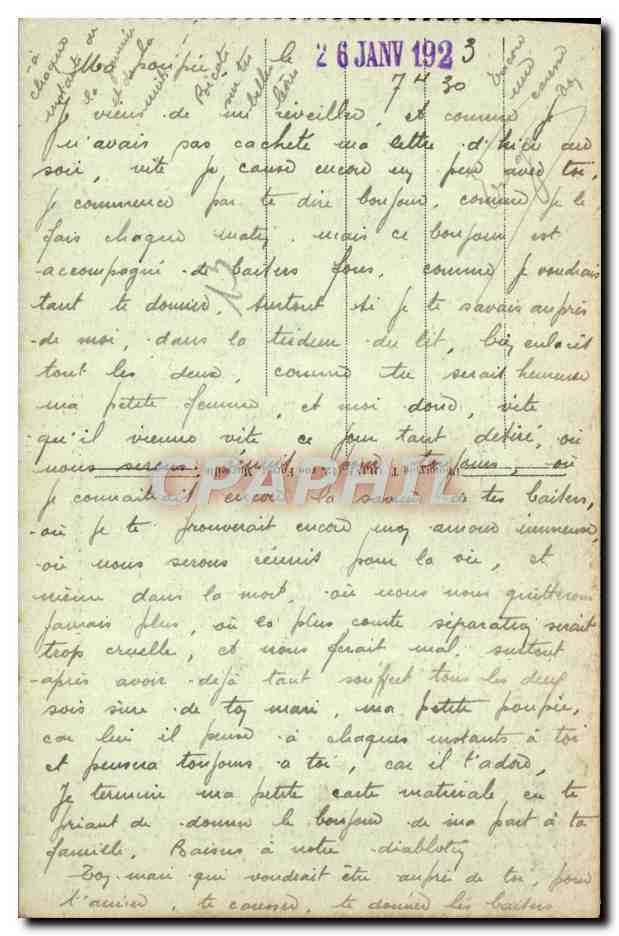 Ma poupée, le 26 JANV 1923
7 H 30
Je viens de me réveiller, et comme je
n'avais pas cacheté ma lettre d'hier au
soir, vite je cause encore un peu avec toi,
je commence par te dire bonjour, comme je le
fais chaque matin, mais ce bonjour est
accompagné de baisers fous, comme je voudrais
tant te donner, surtout si je te savais auprès
de moi, dans la tiedeur du lit, bien enlacés
tout les deux, comme tu serais heureuse
ma petite femme, et moi donc, vite
qu'il vienne vite ce jour tant désiré, où
nous serons réunit pour toujours, où
je connaitrait encore la saveur de tes baisers,
où je te prouverait encore mon amour immense,
où nous serons réunit pour la vie, et
même dans la mort, où nous nous quitterons
jamais plus, où la plus courte séparation serait
trop cruelle, et nous ferait mal, surtout
après avoir déjà tant souffert tous les deux
sois sûre de ton mari, ma petite poupée,
car lui il pense à chaques instants à toi
et pensera toujours a toi, car il t'adore,
Je termine ma petite carte matinale en te
priant de donner le bonjour de ma part à ta
famille. Baisers à notre diablotin
Ton mari qui voudrait être auprès de toi, pour
t'aimer, te caresser, te donner les baisers
à
chaque
instants de
la journée
et de la
nuit
sur tes
belles
lèvres
Encore
une
caresse
13
CPAPHIL